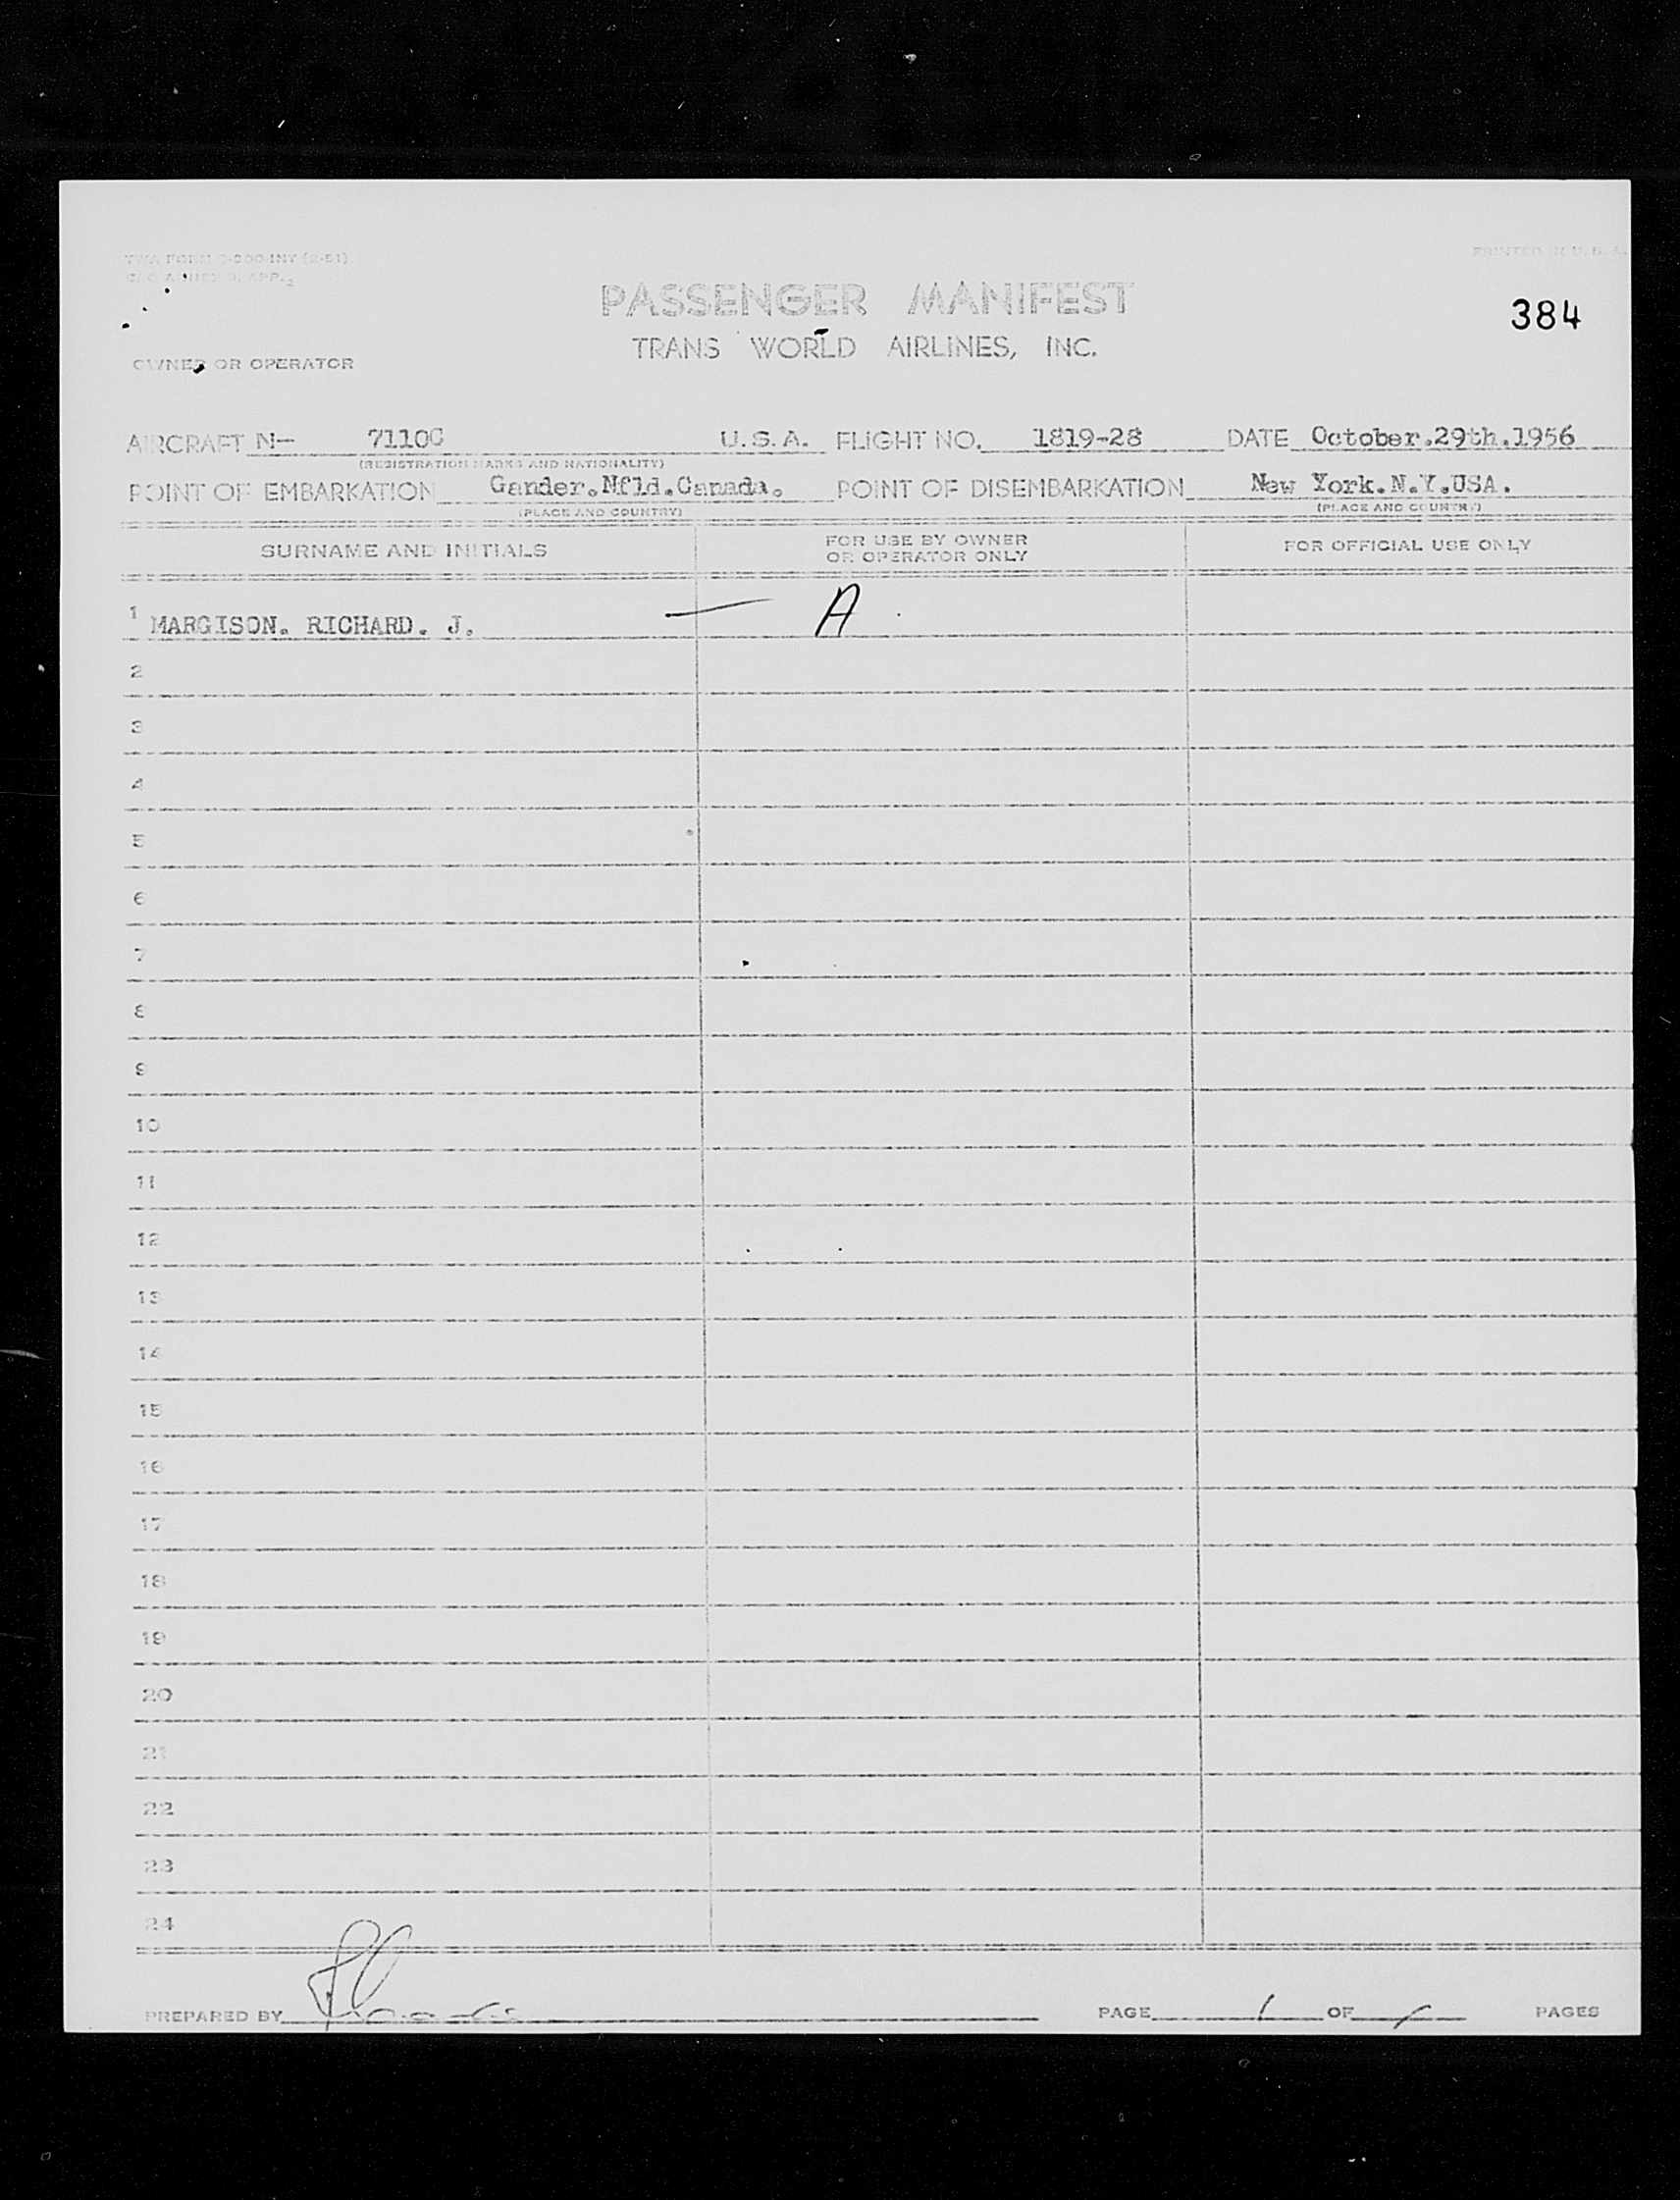 PRINTED IN U.S.A.
PASSENGER MANIFEST
384
TRANS WORLD AIRLINES, INC.
OWNER OR OPERATOR
AIRCRAFT N— 7110C U.S.A. FLIGHT NO. 1819-28 DATE October.29th.1956
(REGISTRATION MARKS AND NATIONALITY)
POINT OF EMBARKATION Gander.Nfld.Canada. POINT OF DISEMBARKATION New York.N.Y.USA.
(PLACE AND COUNTRY) (PLACE AND COUNTRY)
SURNAME AND INITIALS FOR USE BY OWNER OR OPERATOR ONLY FOR OFFICIAL USE ONLY
1 MARGISON. RICHARD. J. — A
2
3
4
5
6
7
8
9
10
11
12
13
14
15
16
17
18
19
20
21
22
23
24
PREPARED BY PAGE 1 OF 1 PAGES